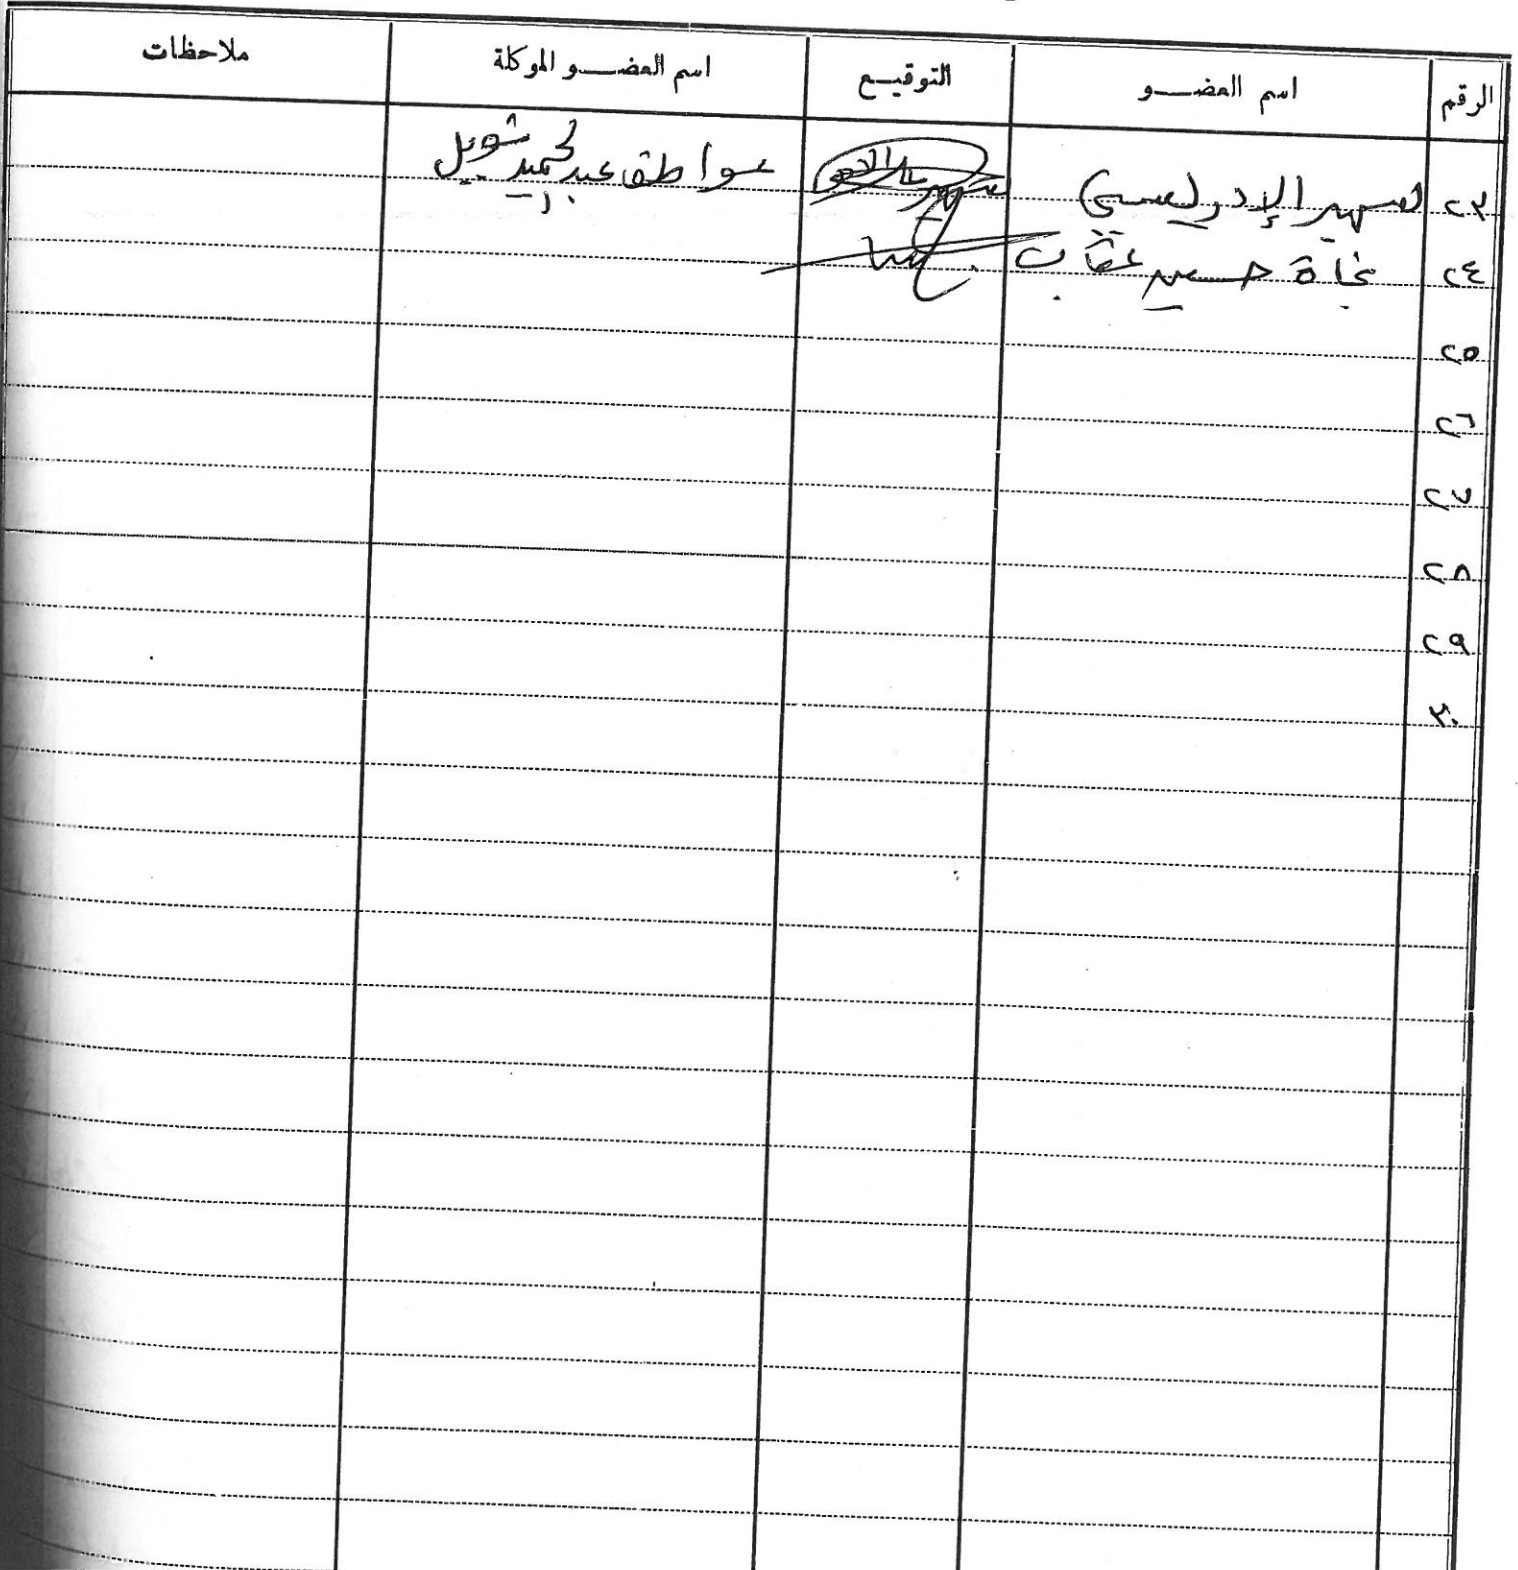 الرقم اسم العضو التوقيع اسم العضو الموكلة ملاحظات
٢٣ سهير الإدريسي عواطف عبد الحميد شويل
٢٤ نجاة حسين عقاب
٢٥
٢٦
٢٧
٢٨
٢٩
٣٠